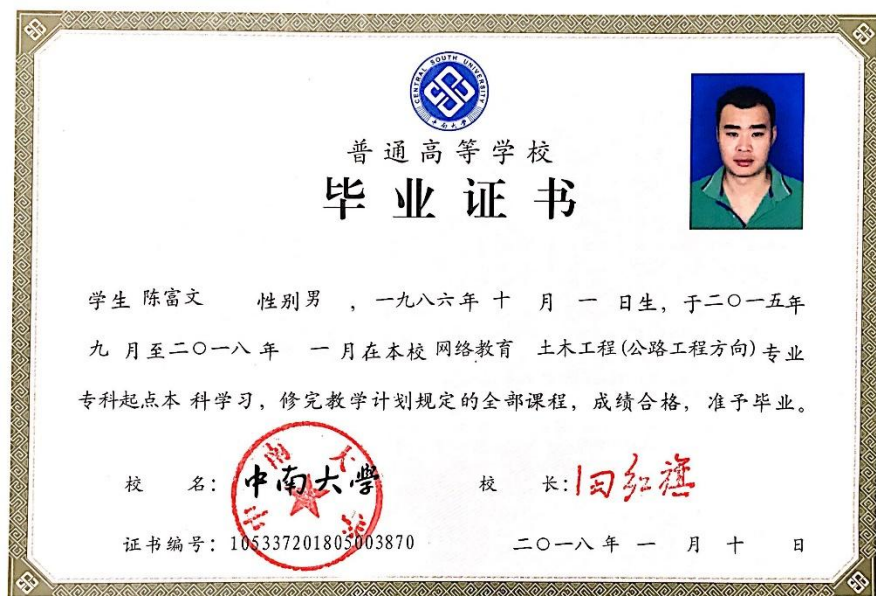 CENTRAL SOUTH UNIVERSITY
中南大学
普通高等学校
毕业证书
学生 陈富文 性别 男 ，一九八六年 十 月 一 日生，于二〇一五年
九 月至二〇一八 年 一 月在本校 网络教育 土木工程(公路工程方向) 专业
专科起点本 科学习，修完教学计划规定的全部课程，成绩合格，准予毕业。
校 名：中南大学 校 长：田红旗
中南大学
证书编号：105337201805003870 二〇一八 年 一 月 十 日